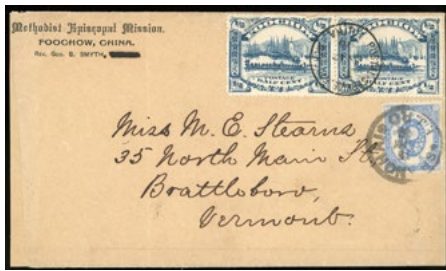 Methodist Episcopal Mission.
FOOCHOW, CHINA.
REV. GEO. B. SMYTH,
POSTAGE
HALF CENT
POSTAGE
HALF CENT
Miss M. E. Stearns
35 North Main St
Brattleboro,
Vermont.